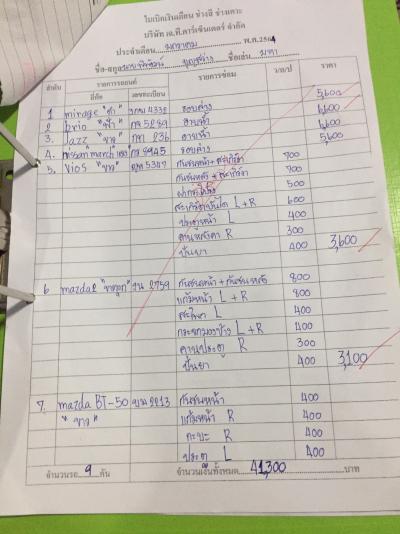 ใบเบิกเงินเดือน ช่างสี ช่างเคาะ
บริษัท เค.ที.คาร์เซ็นเตอร์ จำกัด
ประจำเดือน มกราคม พ.ศ.2564
ชื่อ-สกุล ชื่อเล่น
ลำดับ รายการรถยนต์ รายการซ่อม ราคา
ยี่ห้อ เลขทะเบียน
1 mirage "ดำ" 4332 รอบคัน 5,600
2 brio "ฟ้า" กจ 5289 6,600
3. Jazz "ขาว" 236 6,600
4. nissan march กจ 8945 รอบคัน 5,600
5. Vios "ขาว" 5347 กันชนหน้า + สเกิร์ต 700
กันชนหลัง + สเกิร์ต 700
ฝากระโปรง 500
สเกิร์ตบันได L + R 600
ประตูหน้า L 400
R 300
ปั่นยา 400 3,600
6 mazda2 2759 กันชนหน้า + กันชนหลัง 800
แก้มหน้า L + R 800
สะโพก L 400
กระจกมองข้าง L + R 400
คานประตู R 300
ปั่นยา 400 3,100
7. mazda BT-50 2213 กันชนหน้า 400
"ขาว" แก้มหน้า R 400
กะบะ R 400
ประตู L 400
จำนวนรถ 9 คัน จำนวนเงินทั้งหมด 41,300 บาท